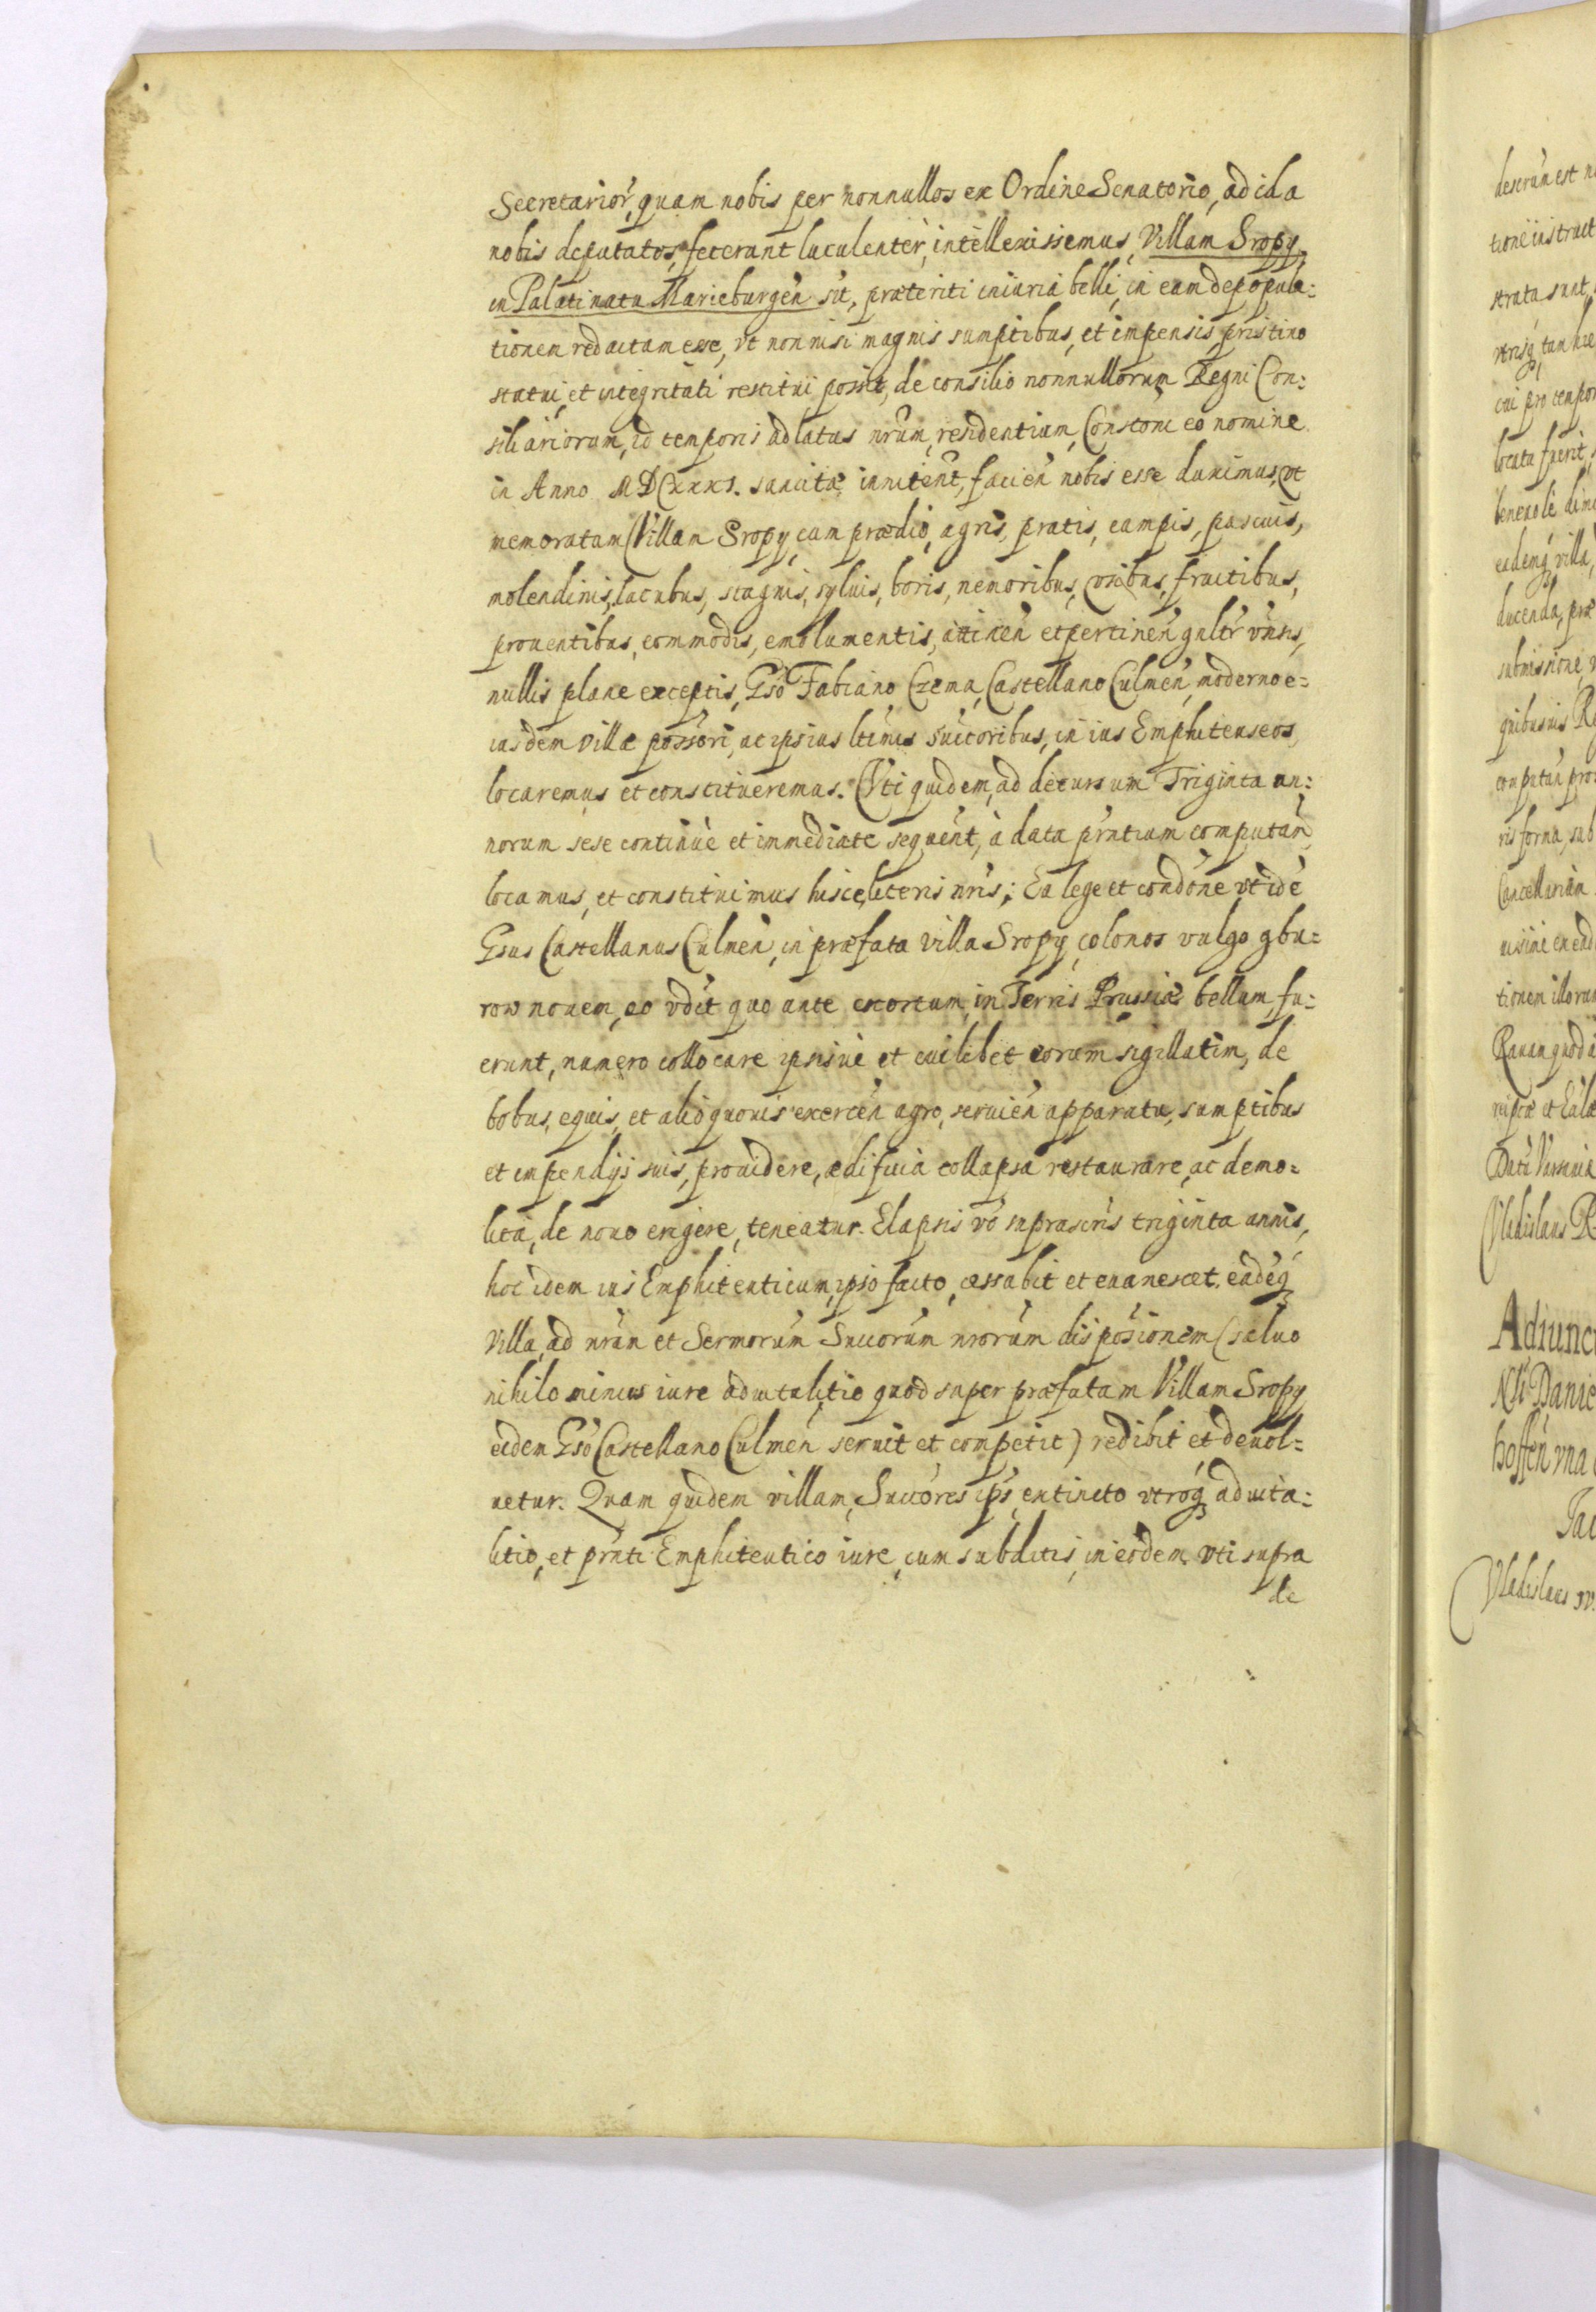 Secretarior̃, quam nobis per nonnullos ex Ordine Senatorio, ad id a
nobis deputatos, fecerant luculenter, intellexissemus, Villam Sropy,
in Palatinatu Marieburgeñ sit, præteriti iniuria belli, in eam depopula:
tionem redactam esse, vt non nisi magnis sumptibus, et impensis, pristino
statui, et integritati restitui possit, de consilio nonnullorum Regni Con:
siliariorum, id temporis ad latus nr̃um, residentium, Constõni eo nomine
in Anno MDCxxxi. sancitæ, inniteñt, facieñ nobis esse duximus, vt
memoratam Villam Sropy, cum prædio, agris, pratis, campis, pascuis,
molendinis, lacubus, stagnis, syluis, boris, nemoribus, vsibus, fructibus,
prouentibus, commodis, emolumentis, attineñ et pertineñ gnl̃r vñsis,
nullis plane exceptis, Gsõ Fabiano Czema, Castellano Culmeñ, moderno e=
iusdem villæ possõri, ac ipsius ltĩmis succoribus, in ius Emphiteuseos,
locaremus et constitueremus. Vti quidem, ad decursum Triginta an:
norum sese continuè et immediate sequeñt, à data pñtium computañ,
locamus, et constituimus hisce literis nr̃is; Ea lege et condõne, vt idẽ
Gsus Castellanus Culmeñ, in præfata villa Sropy, colonos vulgo gbu=
row nouem, eo vdit quo ante exortum, in Terris Prussiæ bellum, fu:
erunt, numero collocare ipsisue et cuilibet eorum sigillatim, de
bobus, equis, et alio quouis exerceñ agro, seruieñ apparatu, sumptibus
et impendijs suis, prouidere, ædificia collapsa restaurare, ac demo=
lita, de nouo erigere, teneatur. Elapsis vo suprascris̃ triginta annis,
hoc idem ius Emphiteuticum, ipso facto, cessabit et euanescet. eãdeq₃
villa, ad nr̃am et Sermorum̃ Succorum̃ nrorum̃ disposiõnem (saluo
nihilominus iure aduitalitio quod super præfatam Villam Sropy
eidem Gsõ Castellano Culmeñ seruit et competit) redibit et deuol=
uetur. Quam quidem villam, Succõres ips̃, extincto vtróq₃ aduita:
litio, et pñti Emphiteutico iure, cum subditis, in eodem, vti supra
de